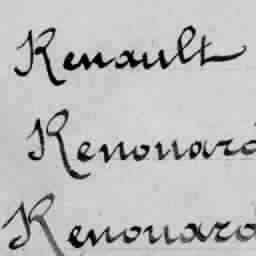 Renault
Renouard
Renouard